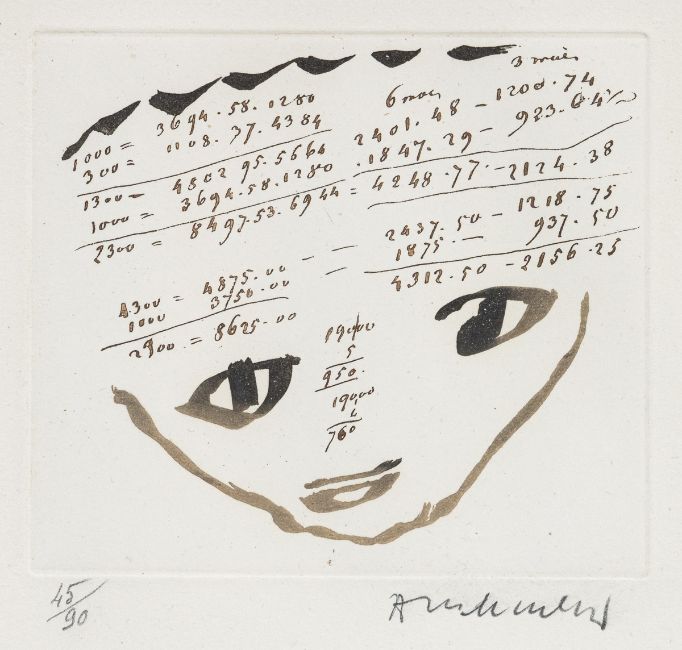 3 mois
6 mois
1000 = 3694.58.1280
2401.48 - 1200.74
300 = 1108.37.4384
1847.29 - 923.64 1/2
1300 - 4802 95.5664
1000 = 3694.58.1280
2300 = 8497.53.6944 = 4248.77 - 2124.38
4300 = 4875.00 - - 2437.50 - 1218.75
1000 3750.00 - 1875. - 937.50
2900 = 8625.00
4312.50 - 2156.25
5
950.
760
45/90